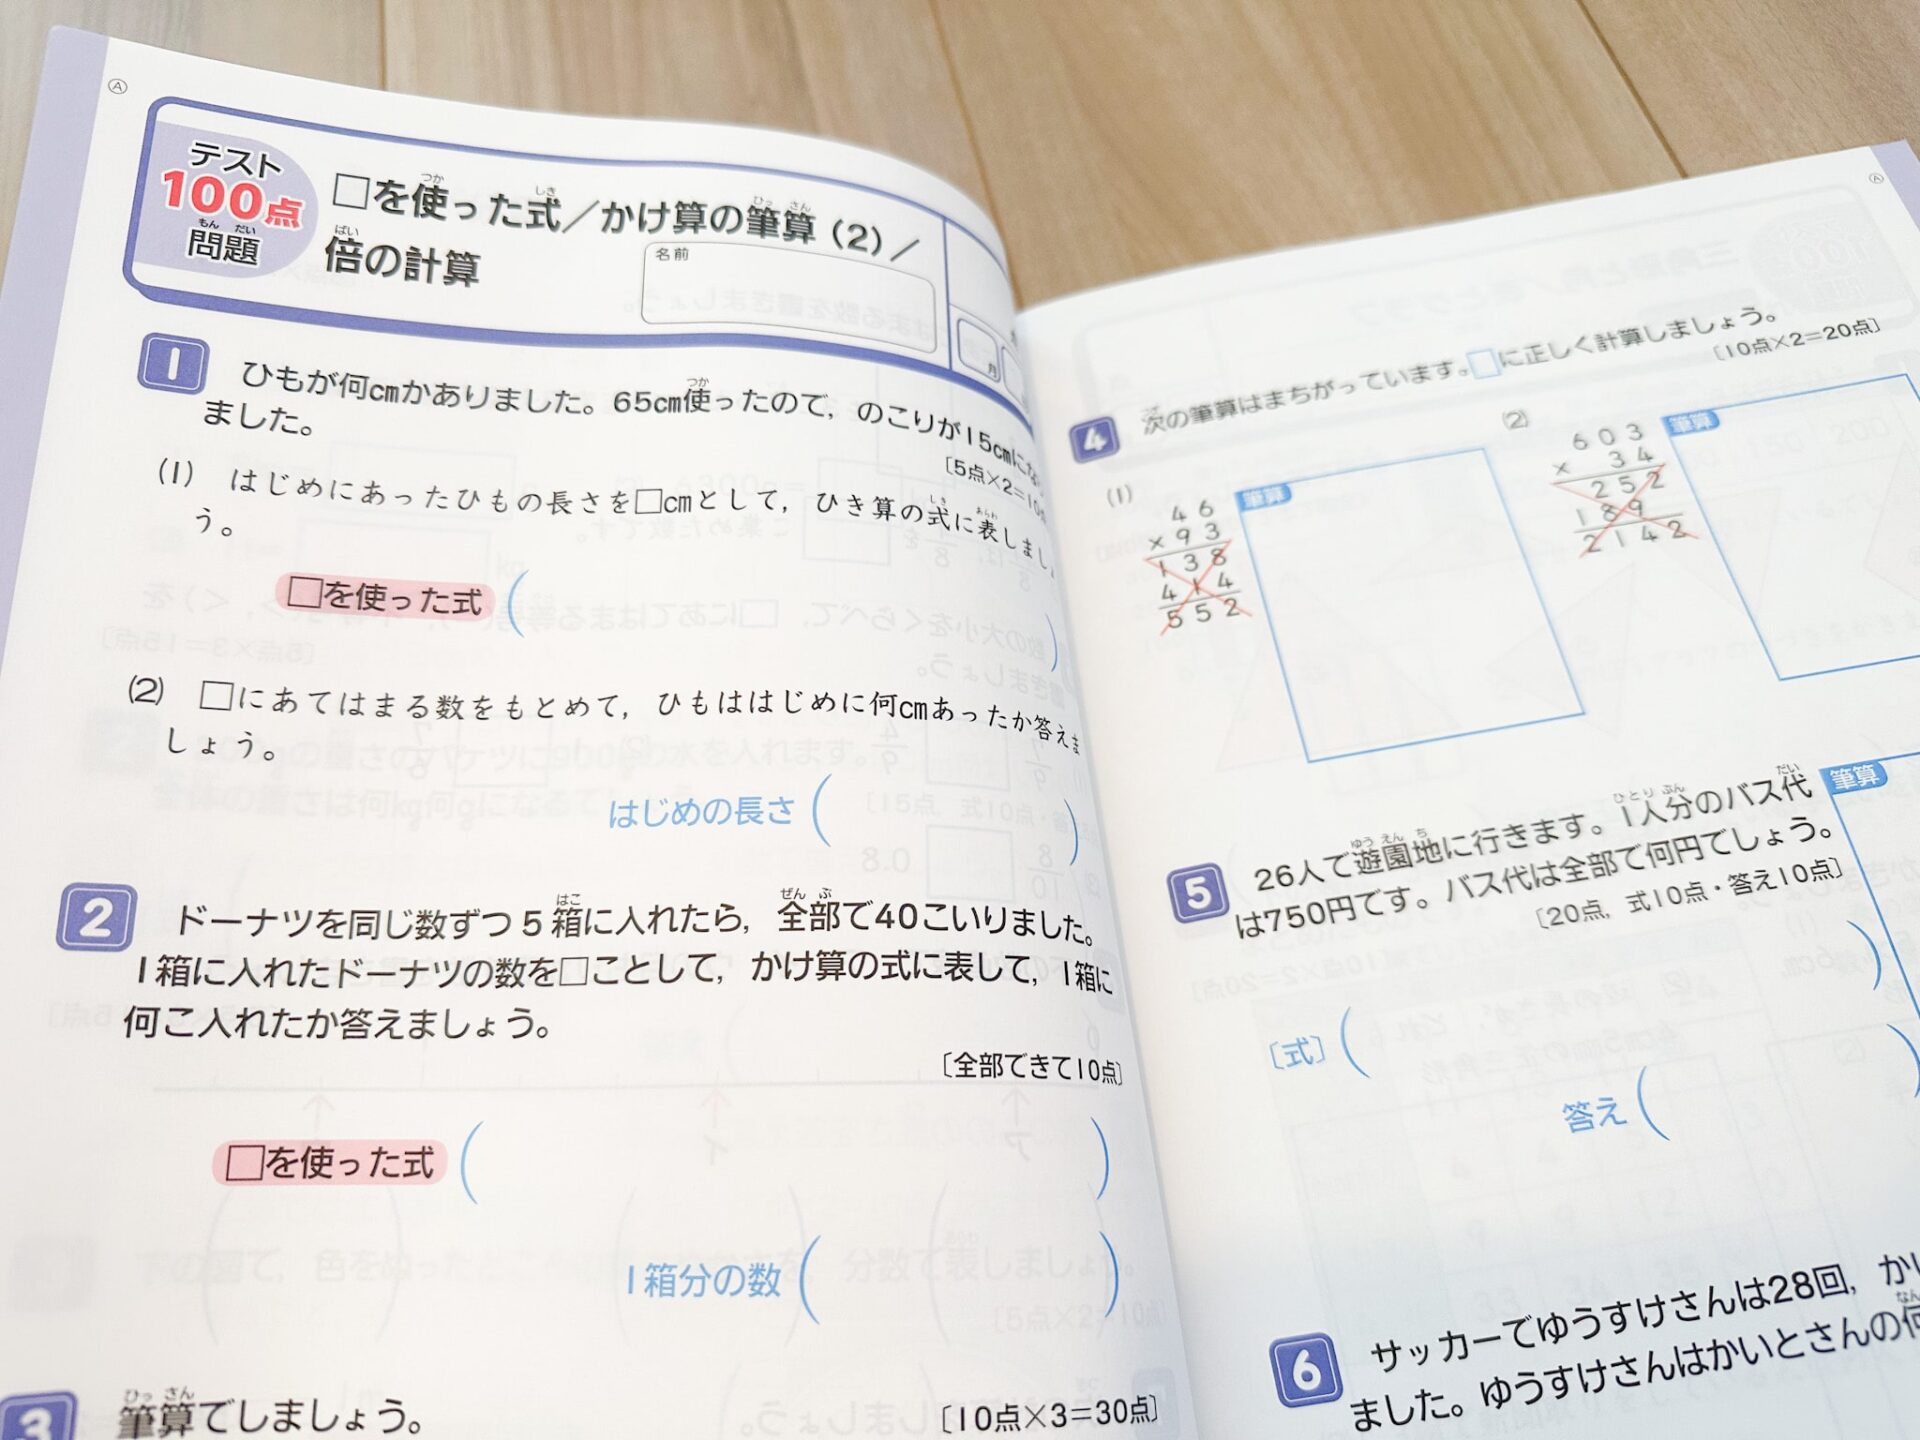 テスト
100点
問題
もんだい
□を使った式／かけ算の筆算（2）／
倍の計算
名前
月
1
ひもが何cmかありました。65cm使ったので，のこりが15cmにな
ました。
〔5点×2＝10
(1) はじめにあったひもの長さを□cmとして，ひき算の式に表しまし
う。
□を使った式（ ）
(2) □にあてはまる数をもとめて，ひもははじめに何cmあったか答えま
しょう。
はじめの長さ（ ）
2
ドーナツを同じ数ずつ5箱に入れたら，全部で40こいりました。
1箱に入れたドーナツの数を□ことして，かけ算の式に表して，1箱に
何こ入れたか答えましょう。
〔全部できて10点〕
□を使った式（ ）
1箱分の数（ ）
3
筆算でしましょう。
〔10点×3＝30点〕
4
次の筆算はまちがっています。□に正しく計算しましょう。
〔10点×2＝20点〕
(1)
46
×93
138
414
552
筆算
(2)
603
×34
252
189
2142
筆算
5
26人で遊園地に行きます。1人分のバス代
は750円です。バス代は全部で何円でしょう。
〔20点，式10点・答え10点〕
筆算
〔式〕（ ）
答え（ ）
6
サッカーでゆうすけさんは28回，か
ました。ゆうすけさんはかいとさんの何